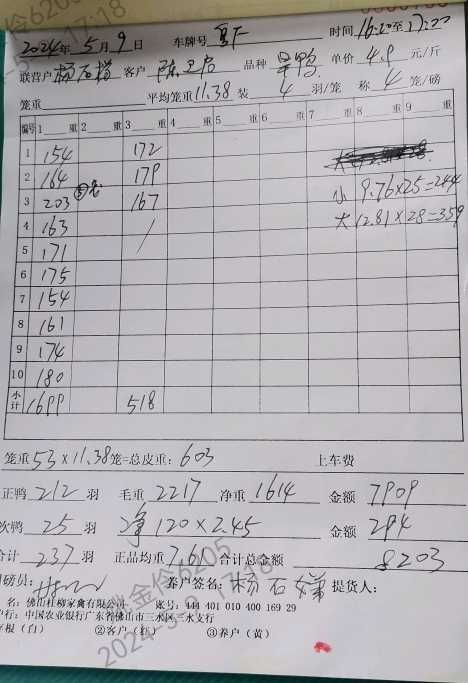 2024年5月9日 车牌号 时间16:20至17:00
联营户 杨石 客户 陈卫 品种 旱鸭 单价 4.9 元/斤
笼重 平均笼重11.38 装 4 羽/笼 称 4 笼/磅
编号 1 重 2 重 3 重 4 重 5 重 6 重 7 重 8 重 9 重
1 154 172
2 164 179
3 203 167 小 9.76×25=244
4 163 / 大 12.81×28=359
5 171
6 175
7 154
8 161
9 174
10 180
小计 1699 518
笼重53×11.38笼=总皮重:603 上车费
正鸭 212 羽 毛重 2217 净重 1614 金额 7909
次鸭 25 羽 净 120×2.45 金额 294
合计 237 羽 正品均重 7.61 合计总金额 8203
司磅员: 养户签名: 杨石 提货人:
名:佛山桂柳家禽有限公司 账号:444 401 010 400 169 29
户行:中国农业银行广东省佛山市三水区三水支行
存根(白) ②客户(红) ③养户(黄)